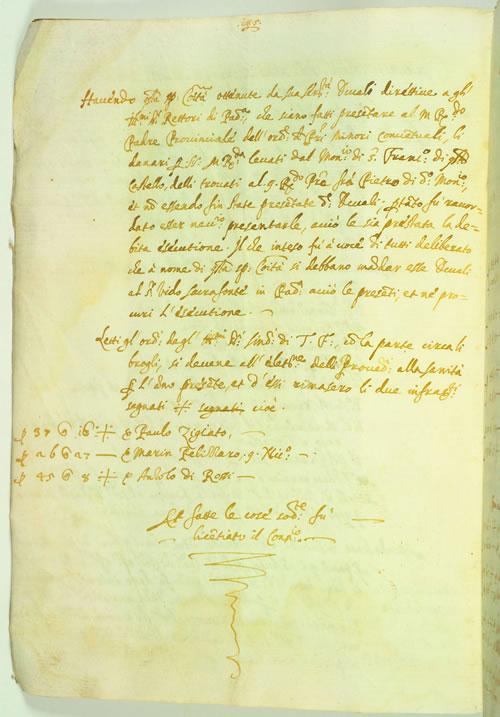 Havendo q̃sta sp. Co͠ità ottenute da sua Ser.tà Ducali direttive a gl'
Ill.mi di Rettori di Pad.a, che siano fatti presentare al M. R.do
Padre Provinciale dell'ord.e di Pri Minori conventuali, li
danari levati dal Mon.io di S. Franc.o di
Castello, delli trovati al q. R.do P͠re frà Pietro di d.o Mon.io,
et nõ essendo fin hora presentate d.e Ducali. Però fù racor-
dato esser nec.io presentarle, acciò le sia prestata la de-
bita essecutione. Il che inteso fù à voce di tutti deliberato
che à nome di q̃sta sp. Co͠ità si debbano mandar esse Ducali
al S.r Vido Sacrafonte in Pad.a acciò le presenti, et ne pro-
curi l'essecutione.
Letti gl'ordi. degl' Ill.mi di Sind.i di T. F., cõ la parte circa li
brogli, si devene all'elett.ne delli Proved.i alla sanità
p̱ l'anno presente, et d'essi rimasero li due infrasc.i
segnati ⁒ segnati cioè.
p. 37 c. 16 ⁒ Paulo Zigiato,
p. 26 c. 27 — Marin q. Nic.o
p. 45 c. 8 ⁒ Antolo di Rossi —
Et fatte le cose sod.te fù
licẽtiato il Cons.io